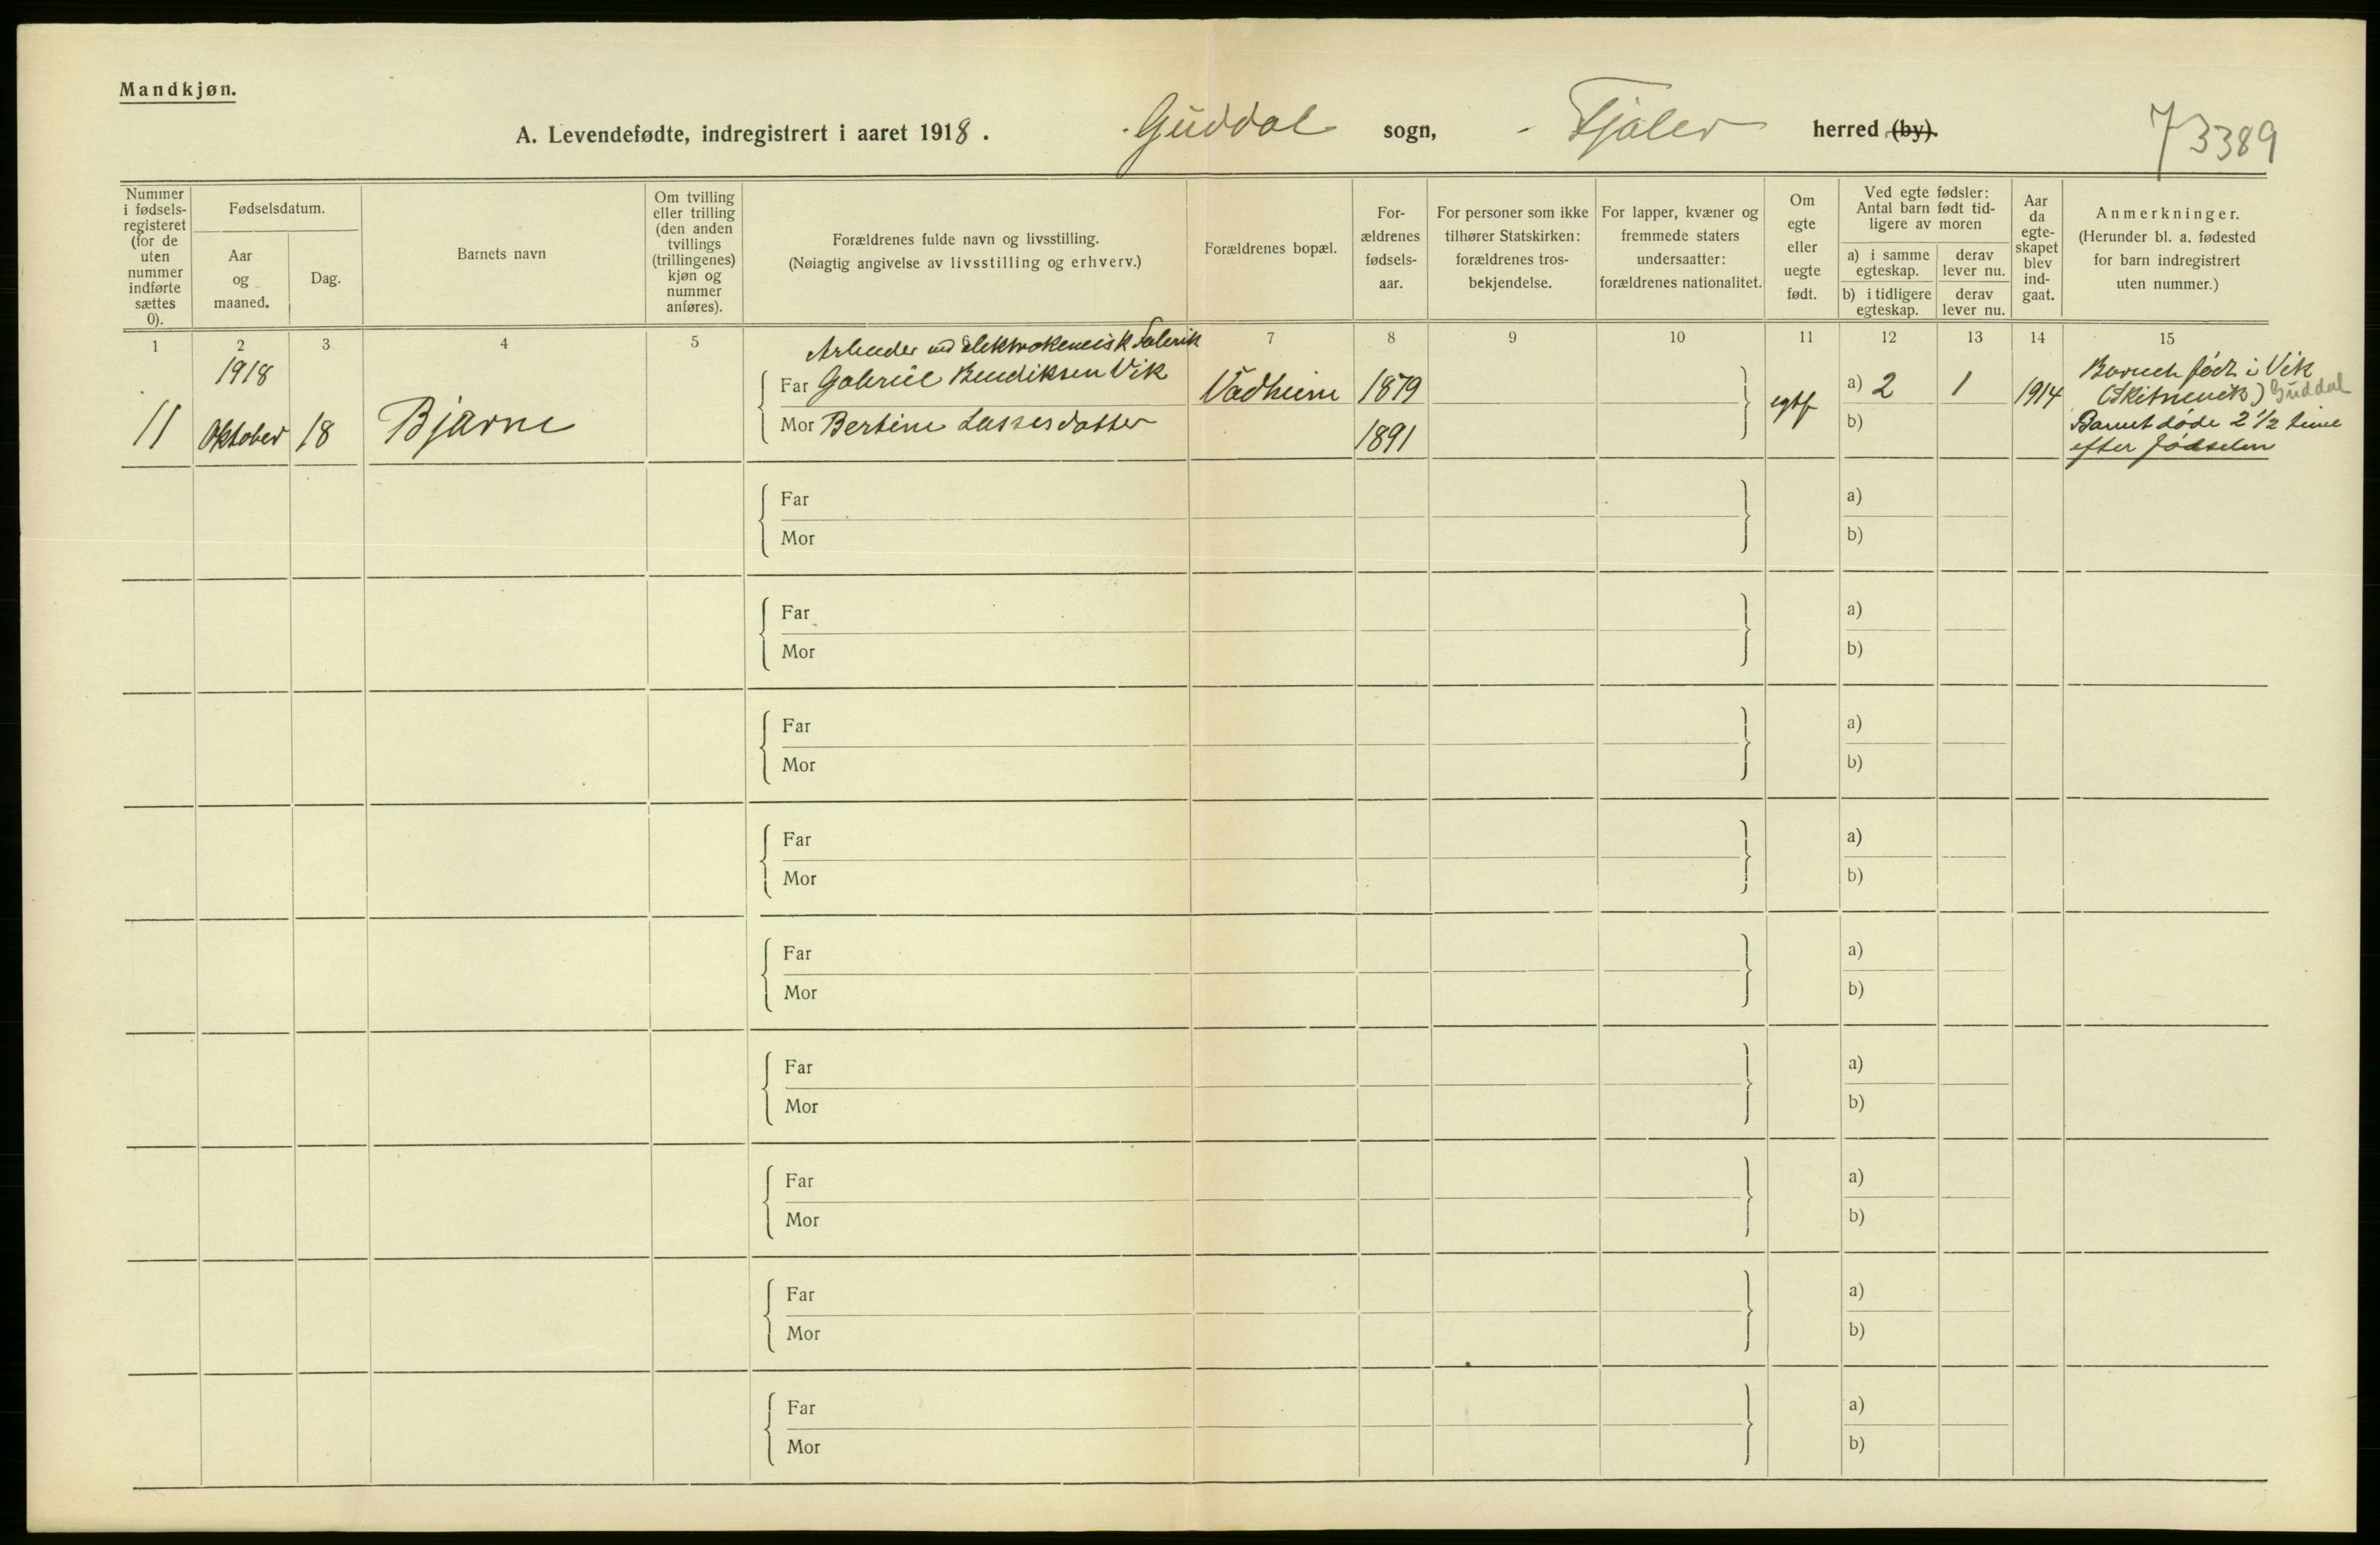 Mandkjøn.
A. Levendefødte, indregistrert i aaret 1918. Guddal sogn, Fjaler herred (by).
73389
Nummer i fødsels-registeret (for de uten nummer indførte sættes 0).
Fødselsdatum.
Aar og maaned.
Dag.
Barnets navn
Om tvilling eller trilling (den anden tvillings (trillingenes) kjøn og nummer anføres).
Forældrenes fulde navn og livsstilling.
(Nøiagtig angivelse av livsstilling og erhverv.)
Forældrenes bopæl.
For-ældrenes fødsels-aar.
For personer som ikke tilhører Statskirken: forældrenes tros-bekjendelse.
For lapper, kvæner og fremmede staters undersaatter: forældrenes nationalitet.
Om egte eller uegte født.
Ved egte fødsler: Antal barn født tid-ligere av moren
a) i samme egteskap.
derav lever nu.
b) i tidligere egteskap.
derav lever nu.
Aar da egte-skapet blev ind-gaat.
Anmerkninger.
(Herunder bl. a. fødested for barn indregistrert uten nummer.)
1 2 3 4 5 7 8 9 10 11 12 13 14 15
Arbeider ved elektrokemisk Fabrik
1918
11 Oktober 18 Bjarne
Far Gabriel Bendiksen Vik Vadheim 1879
Mor Bertine Lassesdatter 1891
egtf
a) 2 1 1914
b)
Barnet født i Vik
Guddal
Barnet døde 2 1/2 time
efter fødselen
Far a)
Mor b)
Far a)
Mor b)
Far a)
Mor b)
Far a)
Mor b)
Far a)
Mor b)
Far a)
Mor b)
Far a)
Mor b)
Far a)
Mor b)
Far a)
Mor b)